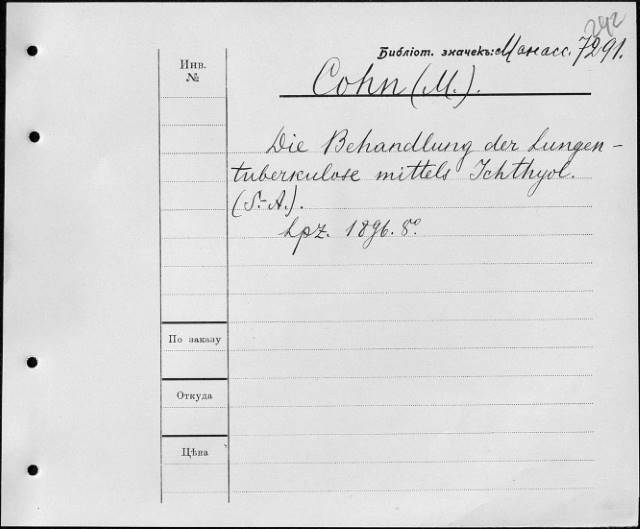 292
Библіот. значекъ: Манасс. 7291.
Инв.
№
Cohn (M.).
Die Behandlung der Lungen-
tuberkulose mittels Ichthyol.
(S.-A.).
Lpz. 1896. 8°.
По заказу
Откуда
Цѣна